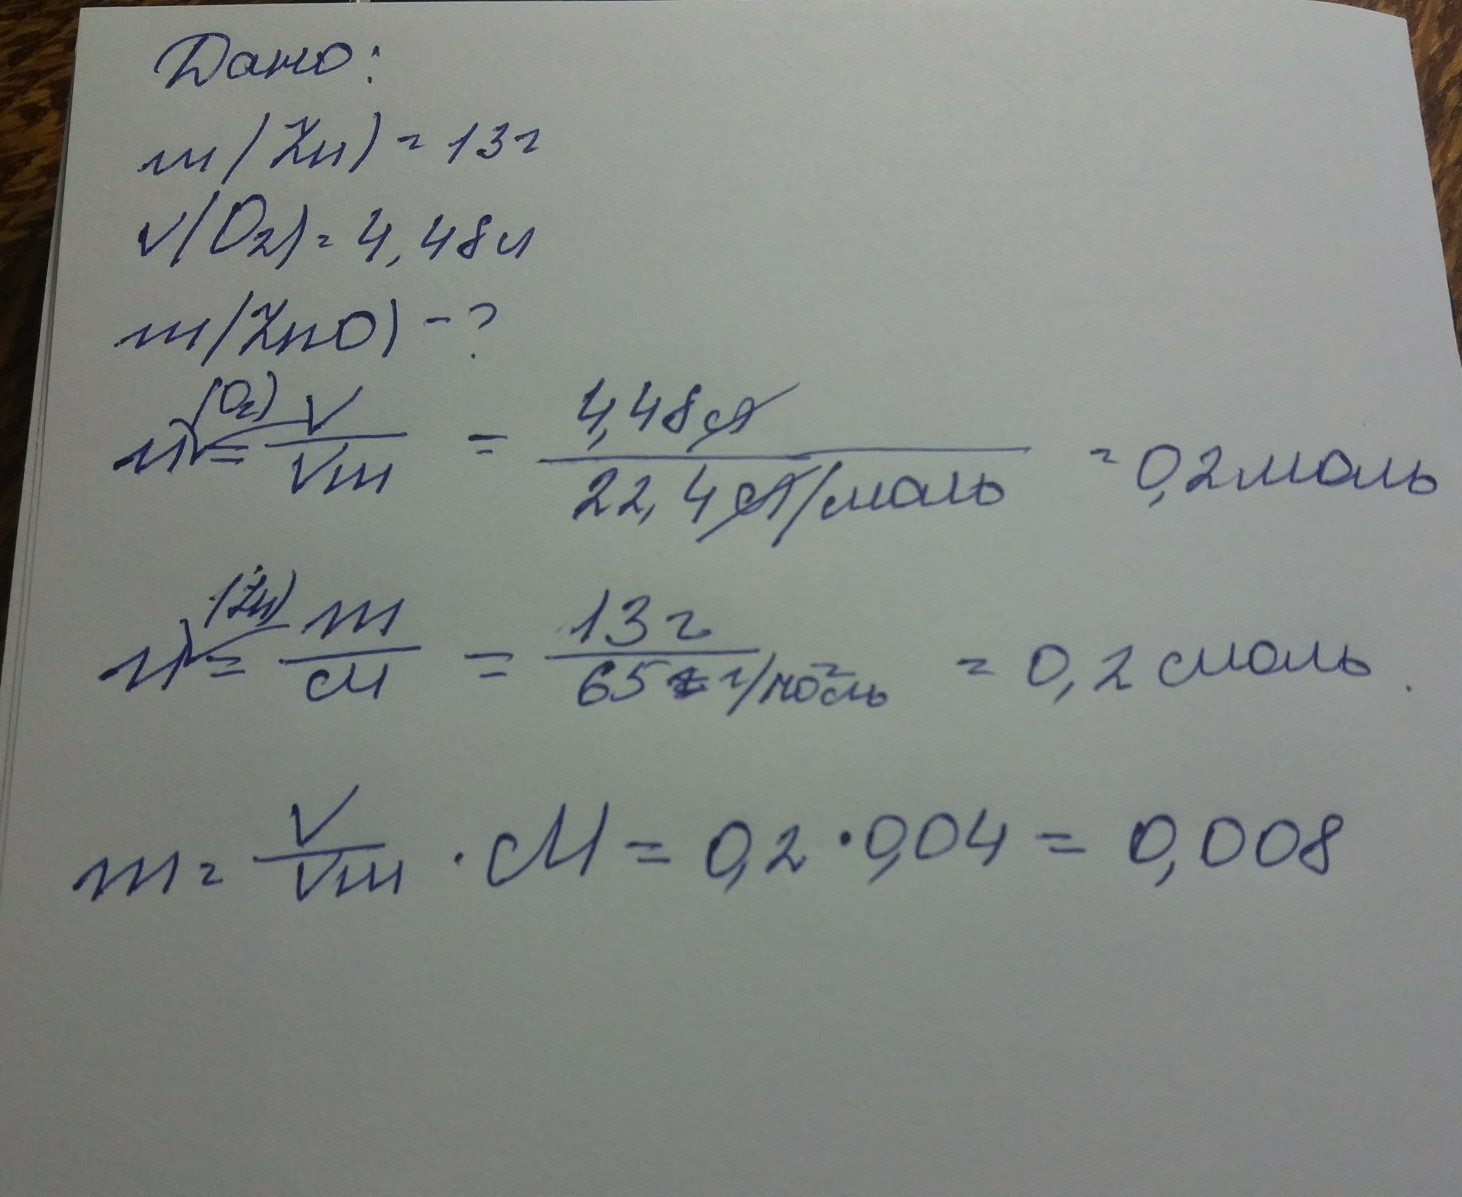 Дано:
m(Zn) = 13г
V(O₂) = 4,48л
m(ZnO) - ?
n(O₂) = V/Vm = 4,48л / 22,4л/моль = 0,2 моль
n(Zn) = m/M = 13г / 65 г/моль = 0,2 моль.
m = V/Vm · M = 0,2 · 0,04 = 0,008